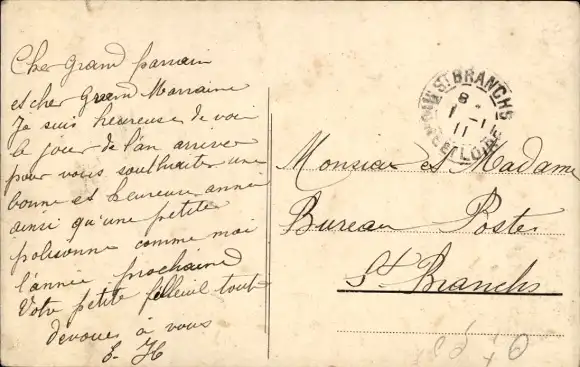 Cher grand parrain
et cher Grand Marraine
Je suis heureuse de voir
le jour de l'an arriver
pour vous southaiter une
bonne et heureuse année
ainsi qu'une petite
polisonne comme moi
l'année prochaine
Votre petite filleul tout
devoués à vous
E. H
ST BRANCHS
8
1 - 1
11
ET LOIRE
Monsieur et Madame
Bureau Poste
St Branchs